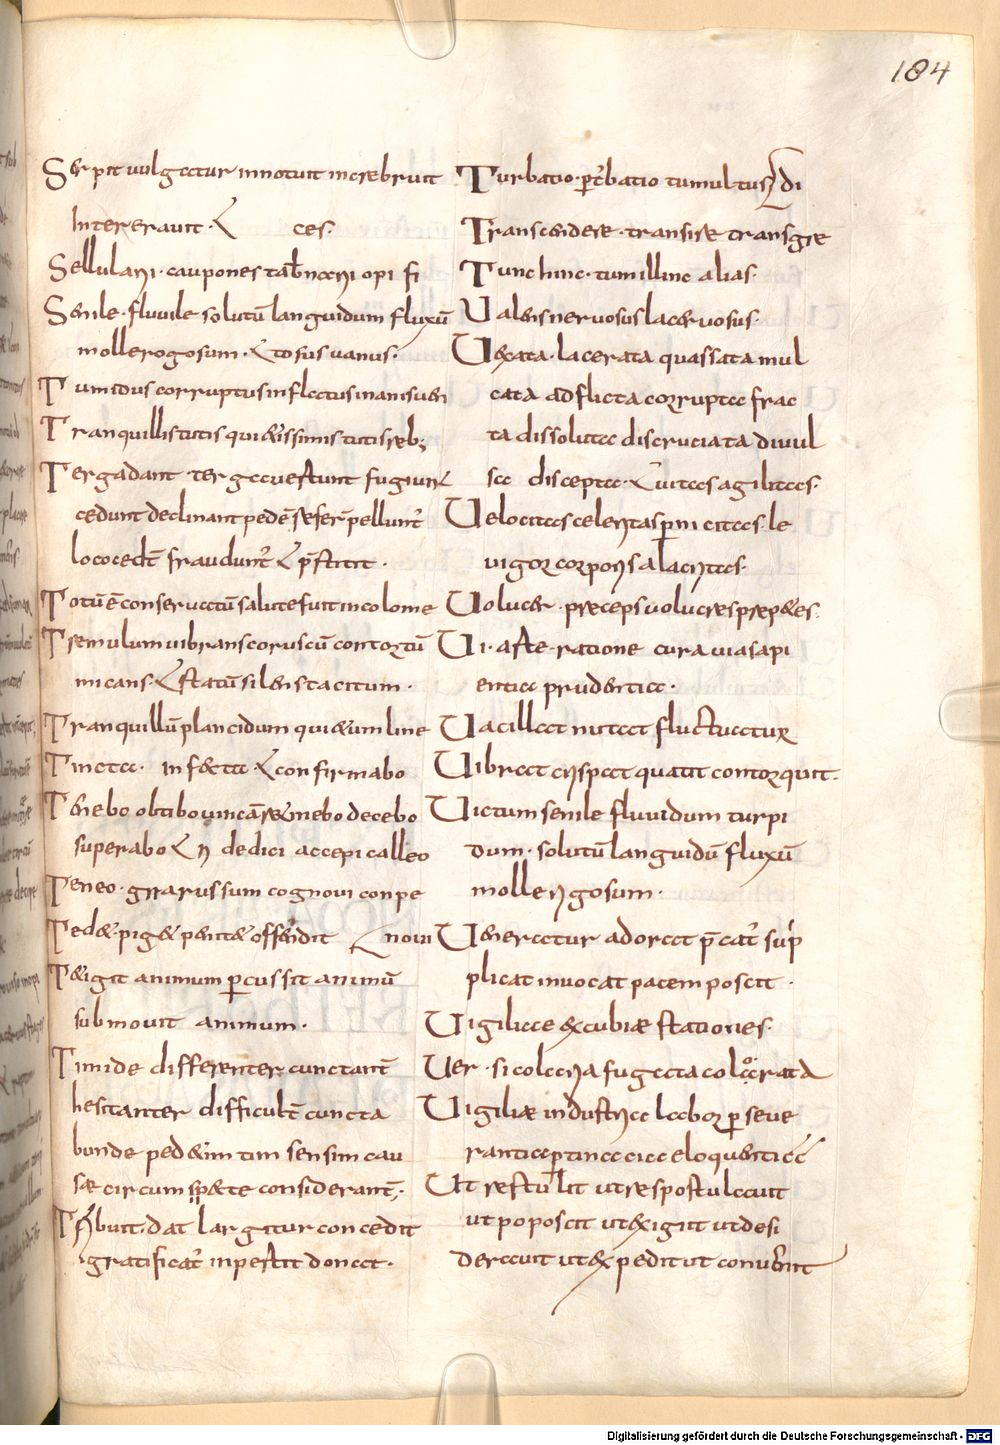 184
Serpit uulgatur innotuit increbruit
Intererauit · ł ces ·
Sellularii · caupones tabernarii opi fi
Senile · fluuile solutū languidum fluxū
molle rogosum · łtosus uanus ·
Tumidus corruptus inflectus inanis uen
Tranquillis tutis quietissimis tutis reb;
Tergadant · terga uestunt fugiunt
cedunt declinant pedē referr̄ pellunt̄
lococedt̄ fraudunt̄ ł p̄stitit ·
Totū ē conseruatū salute fuit incolome
Tremulum uibrans coruscū contortū
micans · ł statū silens tacitum ·
Tranquillū plancidum quietum line
Tincta · infecta ł confirmabo
Tenebo obtibo uincā retinebo decebo
superabo ł n dedici accepi calleo
Teneo · grarus sum cognoui conpe
Tedet · piget penitet offendit ł noui
Tetigit animum percussit animū
submouit animum ·
Timide differenter cunctant̄
hesitanter difficult̄ cuncta
bunde pedetim tim sensim cau
sæ circumspecte considerant̄ ·
Tribuit · dat largitur concedit
gratificat̄ inpestit donat ·
Turbatio · perturbatio tumultus ł di
Transcendere · transire transgre
Tunc hinc · tum illinc alias ·
Ualens neruosus lacertosus ·
Uexata · lacerata quassata mul
cata adflicta corrupta frac
ta dissoluta discruciata diuul
sa discepta · ł uitas agilitas ·
Uelocitas celeritas pernicitas · le
uigor corporis alacritas ·
Uolucer · præceps uolucres præpetes ·
Ui · aste · ratione cura uia sapi
entia prudentia ·
Uacillat nutat fluctuatur
Uibrat crispat quatit contorquit ·
Uictum senile fluuidum turpi
dum · solutū languidū fluxū
molle rigosum ·
Ueneratur adorat p̄cat̄ sup
plicat inuocat pacem poscit ·
Uigiliae excubiæ stationes ·
Uer · si coloria fugata colorata
Uigiliæ industria labor perseue
rantia pertinacia eloquentia
Ut restulit ut respostulauit
ut poposcit ut exigit ut desi
derauit ut expedit ut conuenit
Digitalisierung gefördert durch die Deutsche Forschungsgemeinschaft - DFG